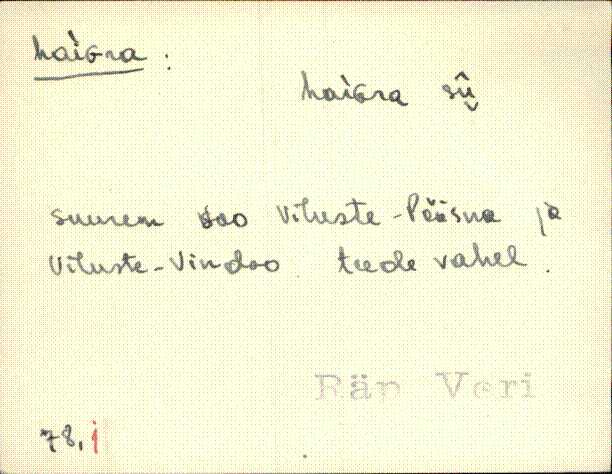 haìGna :
haìGna sû̬
suurem soo Viluste-Pääsna ja
Viluste-Vindso teede vahel.
Räp Veri
78, i